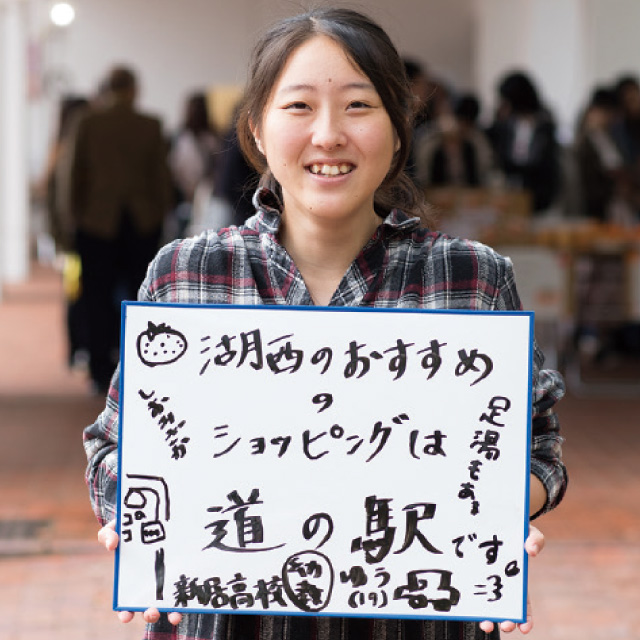 湖西のおすすめ
の
ショッピングは
道の駅です
しおさいか
足湯もある
ココ
新居高校 ゆう
(17)